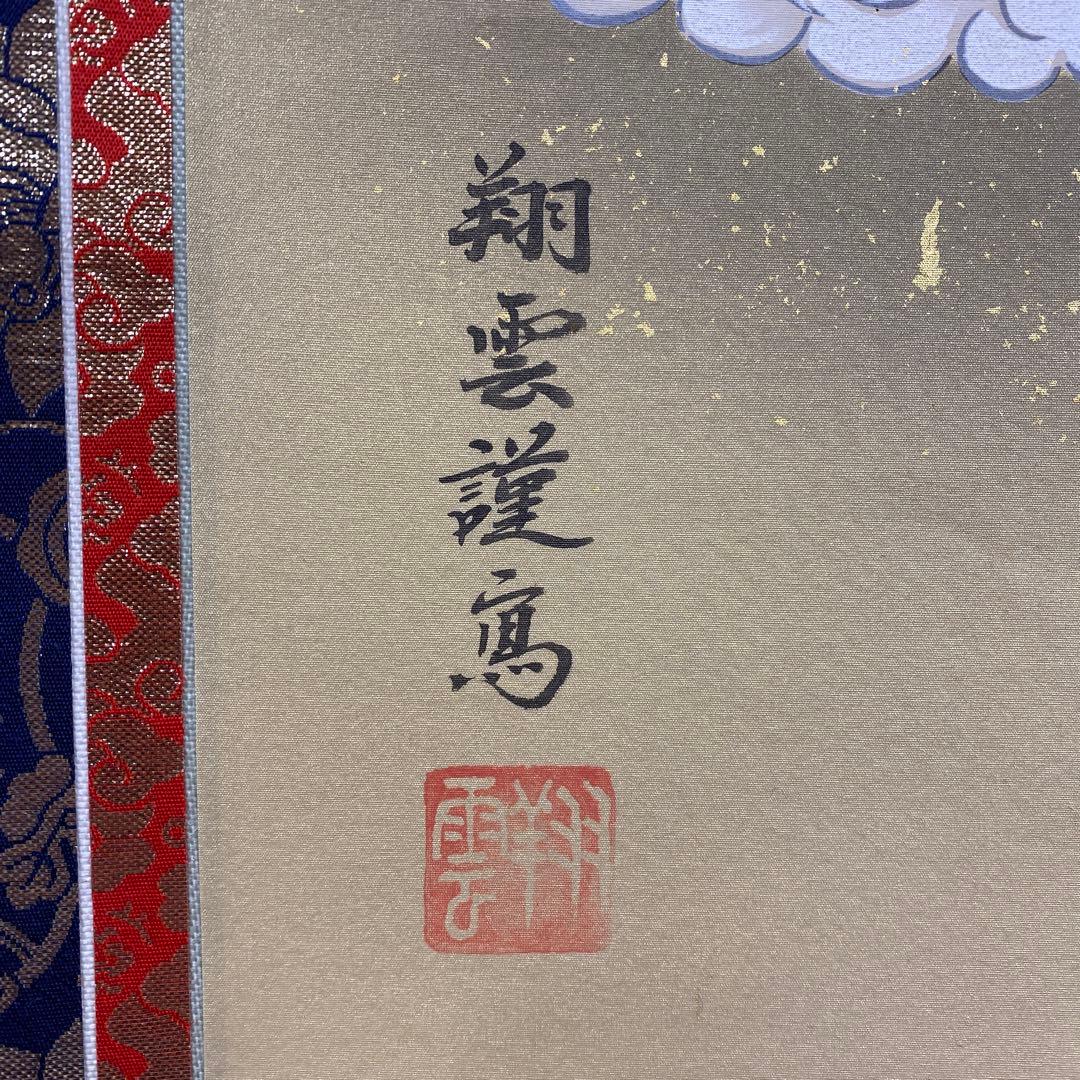 翔雲謹寫
翔雲